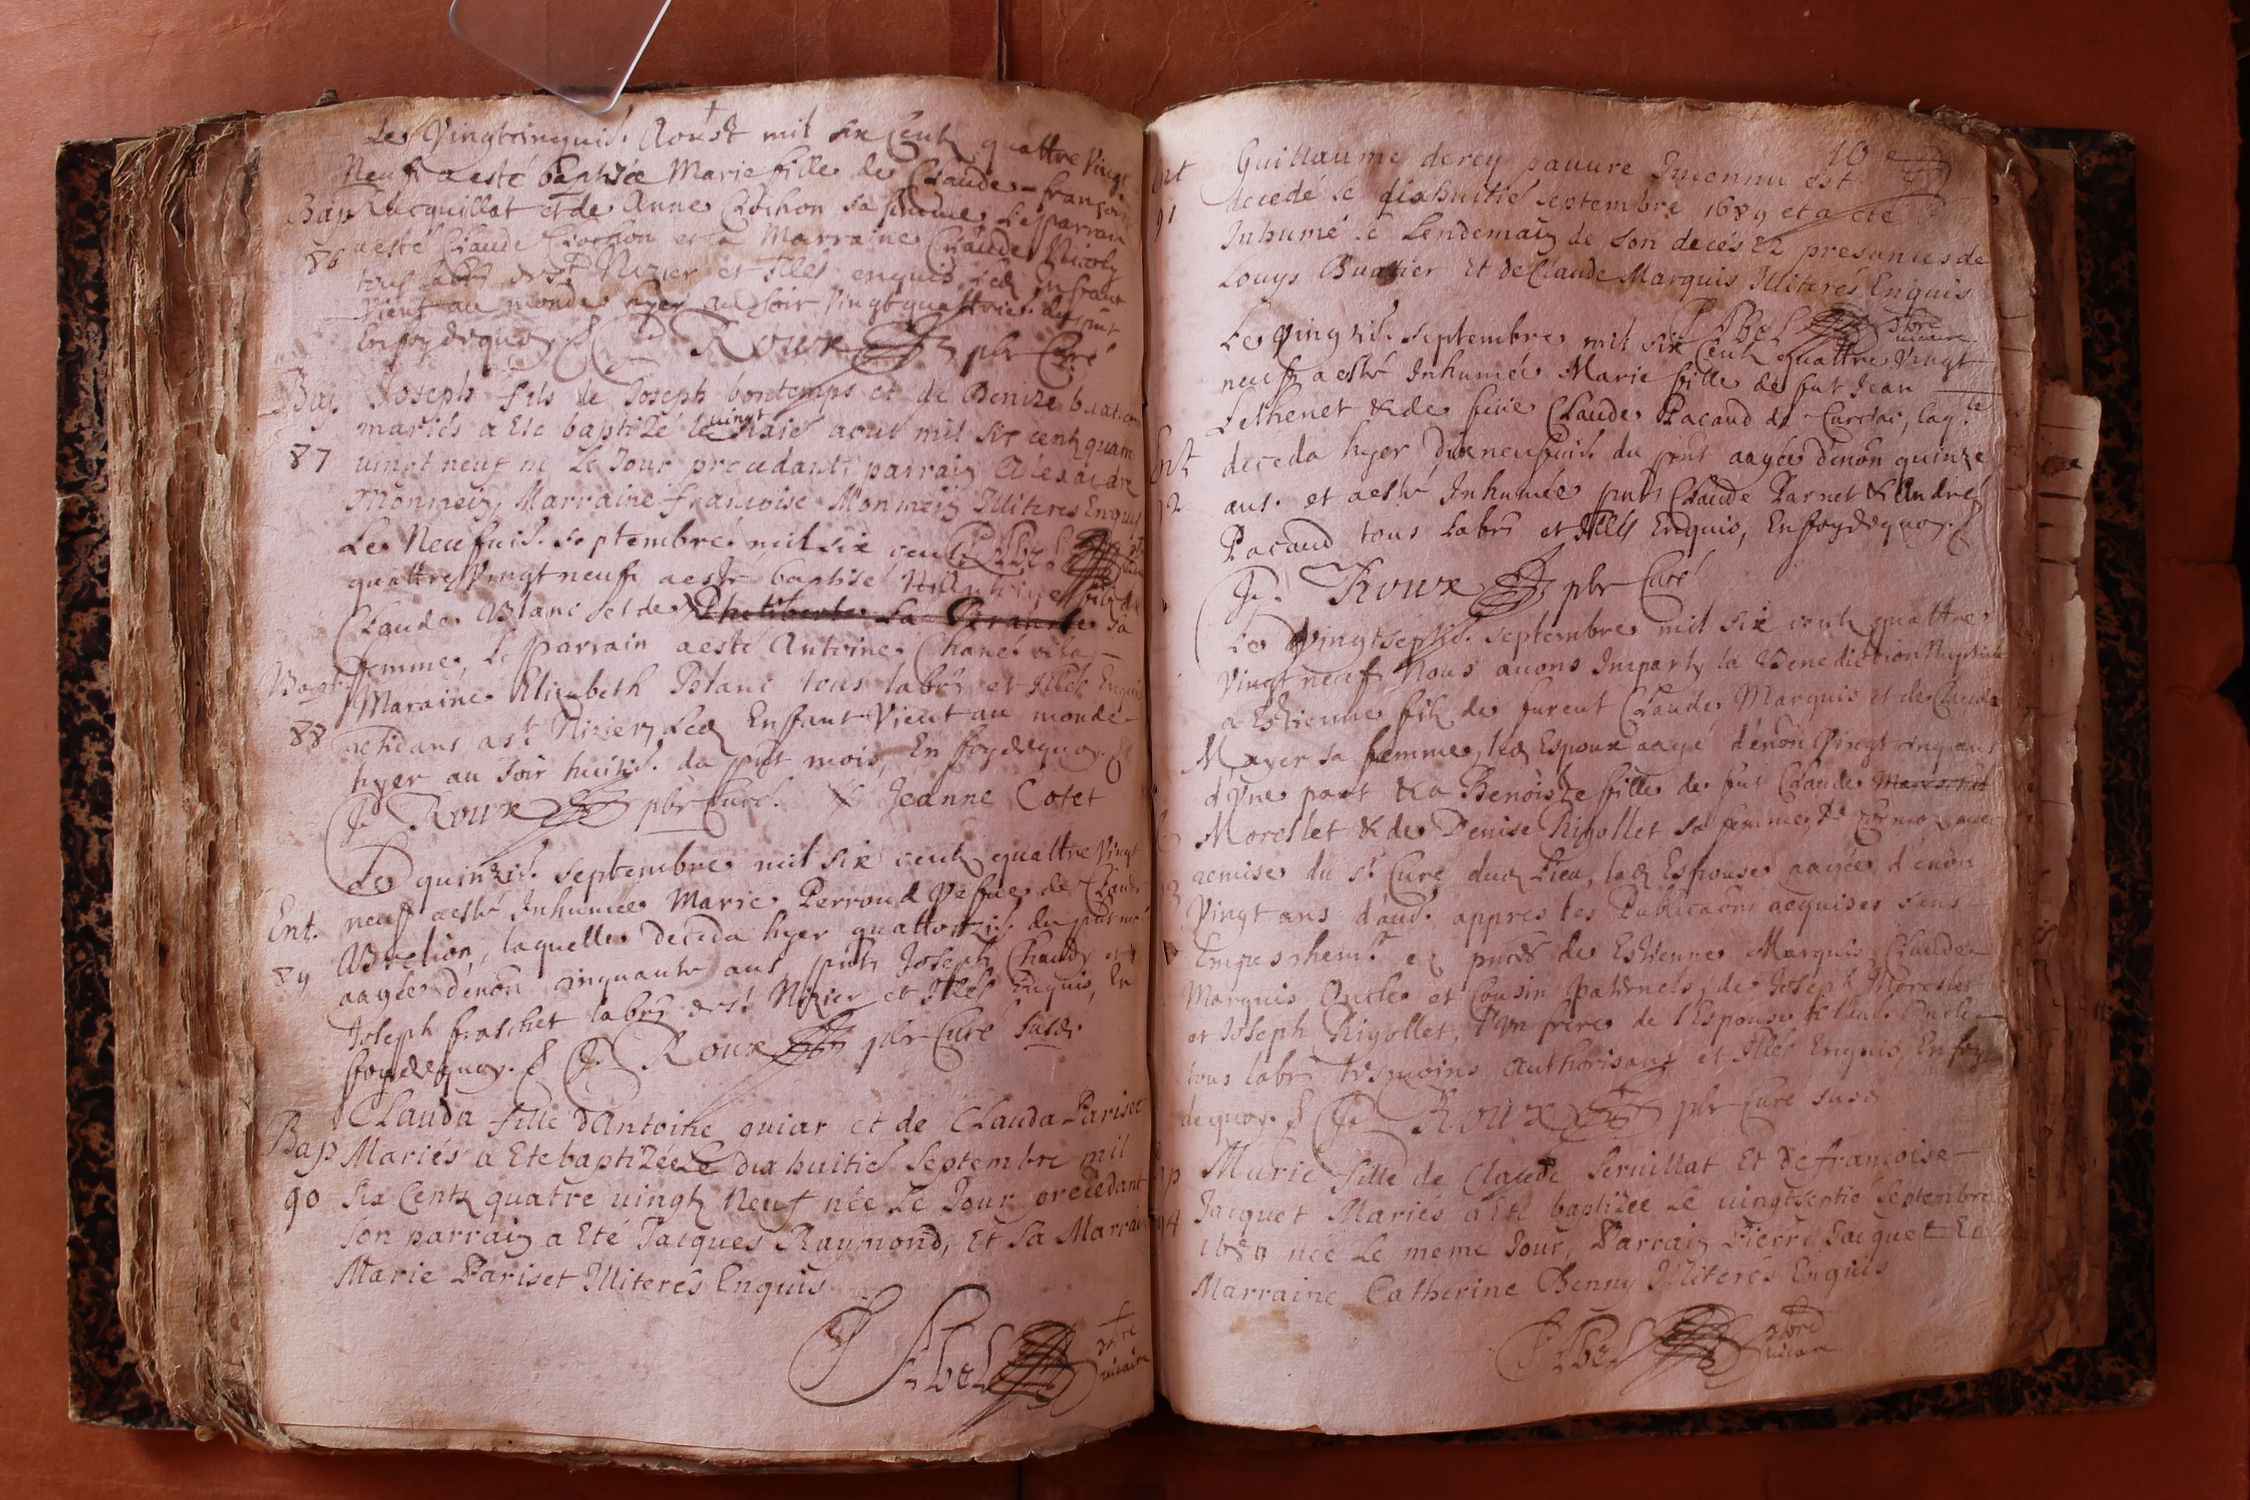 Le Vingtcinquie. Aoust mil six Cents quattre Vingt
Neuf a esté baptisée Marie fille de Claude francois
Bap Jacquillat et de Anne Cochon sa femme Le parrain
86 a esté Claude Cochon et la Marraine Claude Nicoly
tous labrs de St Nizier et Illés enquis Led Enfant
Vient au monde hyer au soir Vingtquattrie. du pnt
En foy de quoy.
P. Roux pbr Curé
Bap Joseph fils de Joseph bontemps et de Benize
mariés a Eté baptizé le vingt aout mil six cents quatre
87 uingt neuf né Le Jour precedant parrain Alexandre
Monmein, Marraine francoise Monmein Illiterés Enquis
P Lbel
Le Neufuie. septembre mil six cent
quattre Vingt neuf a esté baptisé Antoine fils de
Claude Blanc et de Philiberte La Grange sa
Bapt. femme, Le parrain a esté Antoine Chane
Maraine Elizabeth Blanc tous labrs et Illés Enquis
88 residans a St Nizier, Led Enfant Vient au monde
hyer au soir huitie. du pnt mois, En foy de quoy.
P. Roux pbr Curé. X Jeanne Cotet
Le quinzie. septembre mil six cents quattre Vingt
Ent. neuf a esté Inhumée Marie Perroud Vefue de Claude
Brelion, laquelle deceda hyer quattorzie. du pnt mois
89 aagée d'enon cinquante ans pnts Joseph Chaudy et
Joseph fraschet labrs de St Nizier et Illés Enquis, En
foy de quoy. P. Roux pbr Curé susd.
Clauda fille dAntoine ouiar et de Clauda Pariset
Bap Mariés a Eté baptizée Le dix huitie septembre mil
90 six Cents quatre uingts Neuf née Le Jour precedant
son parrain a Eté Jacques Raymond, Et sa Marraine
Marie Pariset Illiterés Enquis
P Lbel pbre uicaire
10
Ent Guillaume derey pauure Inconnu est
91 decedé le dixhuitie septembre 1689 et a eté
Inhumé le Lendemain de son decés En presances de
Louys Buatier Et de Claude Marquis Illiterés Enquis
P Lbel pbre uicaire
Le Vingtie. septembre mil six Cents quattre Vingt
neuf a esté Inhumée Marie fille de fut Jean
Lethenet & de feue Claude Pacaud de Curciat, laq.le
Ent deceda hyer dixneufuie. du pnt aagée d'enon quinze
92 ans. et a esté Inhumée pnts Claude Parnet & André
Pacaud tous labrs et Illés Enquis, En foy de quoy.
P. Roux pbr Curé
Le Vingtseptie. septembre mil six cents quattre
Vingt neuf Nous auons Imparty la Benediction Nuptiale
a Estienne fils de furent Claude Marquis et de Claude
Mayer sa femme, led Espoux aagé d'enon Vingt cinq ans
d'Vne part & a Benoiste fille de fut Claude Mareschal
Morellet & de Denise Rigollet sa femme, de Cormoz auec
remise du St Curé dud Lieu, lad Espouse aagée d'enon
Vingt ans d'aud. appres les Publications acquises sans
Empeschem.t en pnces de Estienne Marquis, Claude
Marquis Oncle et Cousin paternels, de Joseph Morellet
et Joseph Rigollet, l'Vn frere de l'Espouse & l'au. Oncle
tous labrs tesmoins authorisant et Illés Enquis, En foy
de quoy. P. Roux pbr Curé susd
Marie fille de Claude Seruillat Et de francoise
Jacquet Mariés a Eté baptizée Le uingtseptie septembre
94 1689 née Le meme Jour, Parrain Pierre Jacquet Et
Marraine Catherine Benny Illiterés Enquis
P Lbel pbre uicaire